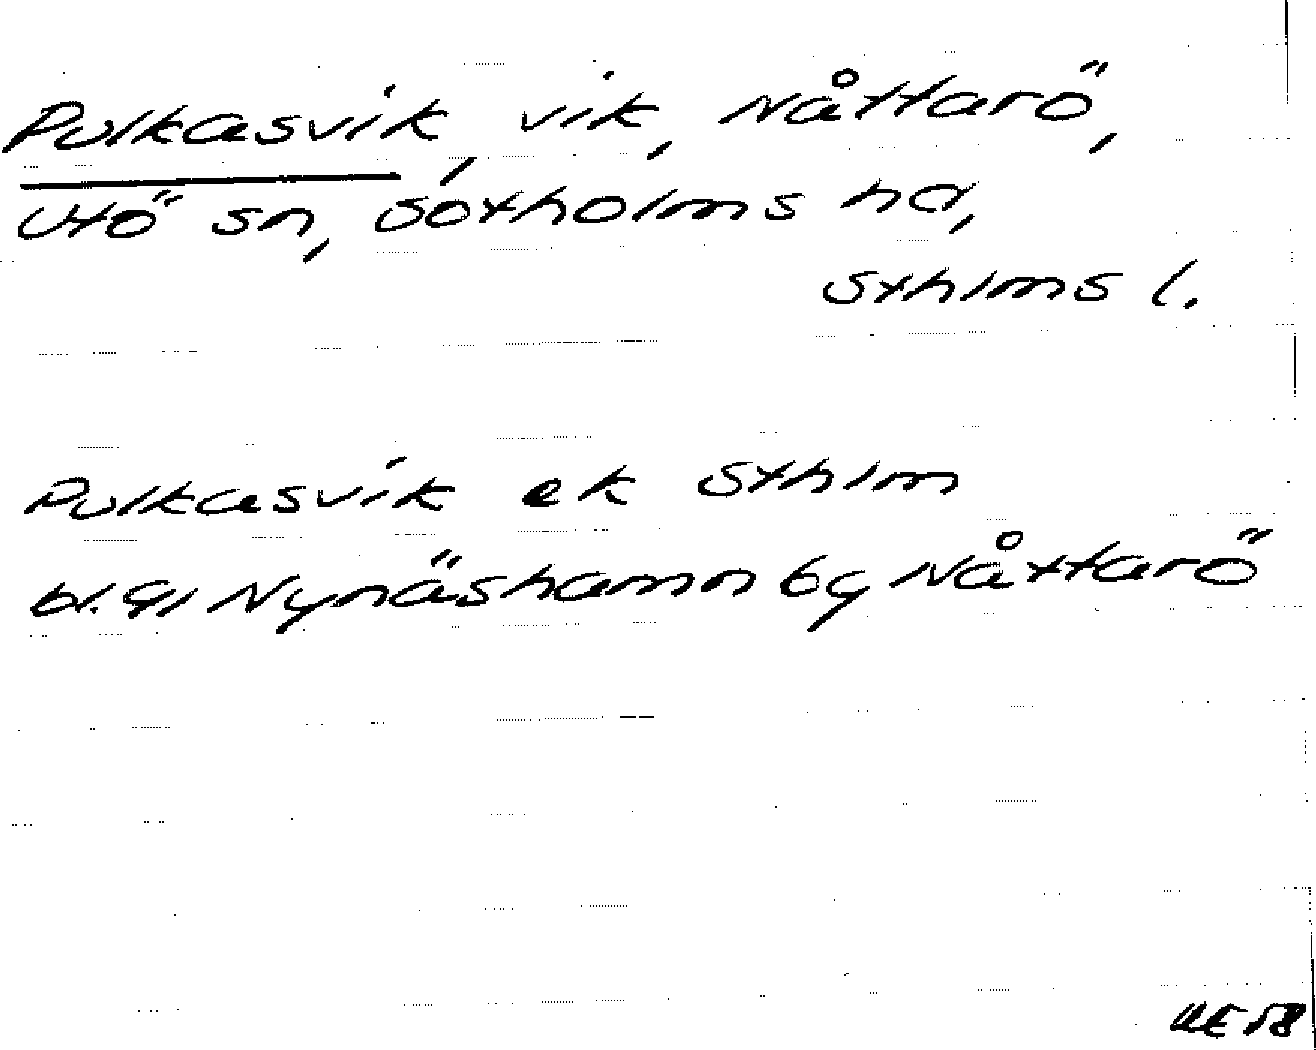 Pulkasvik, vik, Nåttarö,
Utö sn, Sotholms hd,
Sthlms l.
Pulkasvik ek Sthlm
bl. 91 Nynäshamn by Nåttarö